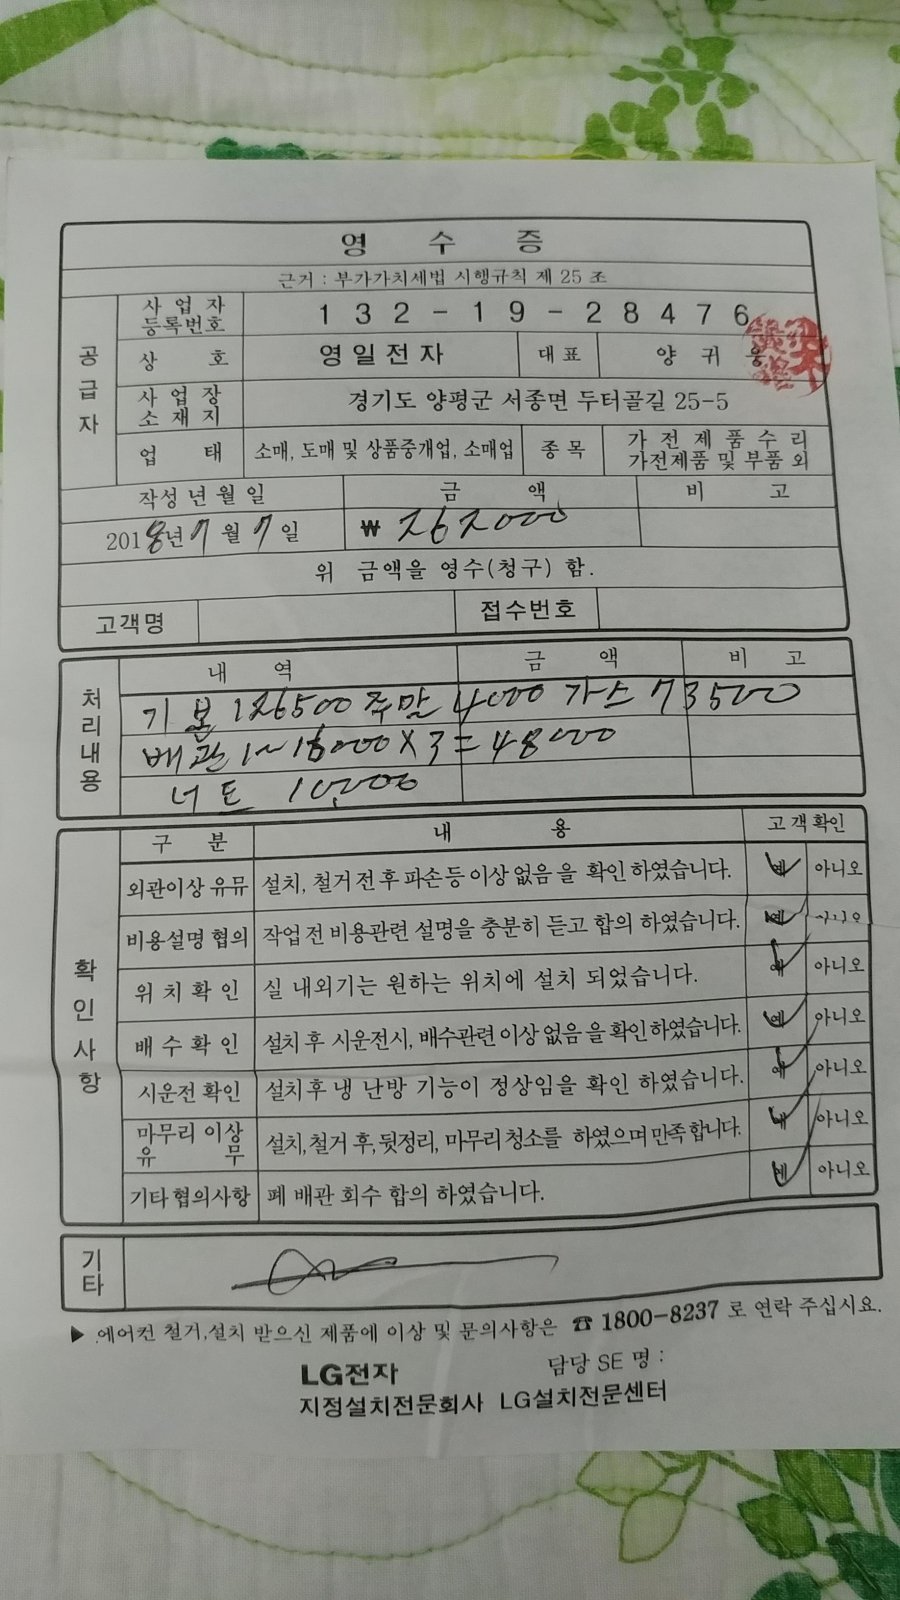 영 수 증
근거 : 부가가치세법 시행규칙 제 25 조
공급자
사 업 자 등록번호 132-19-28476
상 호 영일전자 대표 양 귀 웅
사 업 장 소 재 지 경기도 양평군 서종면 두터골길 25-5
업 태 소매, 도매 및 상품중개업, 소매업 종목 가 전 제 품 수 리 가전제품 및 부품 외
작성 년 월 일 금 액 비 고
2018년 7월 7일 ₩ 262000
위 금액을 영수(청구) 함.
고객명 접수번호
처리내용
내 역 금 액 비 고
기본 126500 주말 4000 가스 73500
배관 1~16000X3=48000
너트 10,000
확인사항
구 분 내 용 고객확인
외관이상 유무 설치, 철거 전후 파손등 이상 없음을 확인 하였습니다. 예 아니오
비용설명 협의 작업 전 비용관련 설명을 충분히 듣고 합의 하였습니다. 예 아니오
위 치 확 인 실 내외기는 원하는 위치에 설치 되었습니다. 예 아니오
배 수 확 인 설치 후 시운전시, 배수관련 이상 없음을 확인하였습니다. 예 아니오
시운전 확인 설치 후 냉 난방 기능이 정상임을 확인 하였습니다. 예 아니오
마무리 이상 유 무 설치, 철거 후, 뒷정리, 마무리 청소를 하였으며 만족합니다. 예 아니오
기타 협의사항 폐 배관 회수 합의 하였습니다. 예 아니오
기타
▶ .에어컨 철거,설치 받으신 제품에 이상 및 문의사항은 ☎ 1800-8237 로 연락 주십시요.
LG전자 담당 SE 명 :
지정설치전문회사 LG설치전문센터